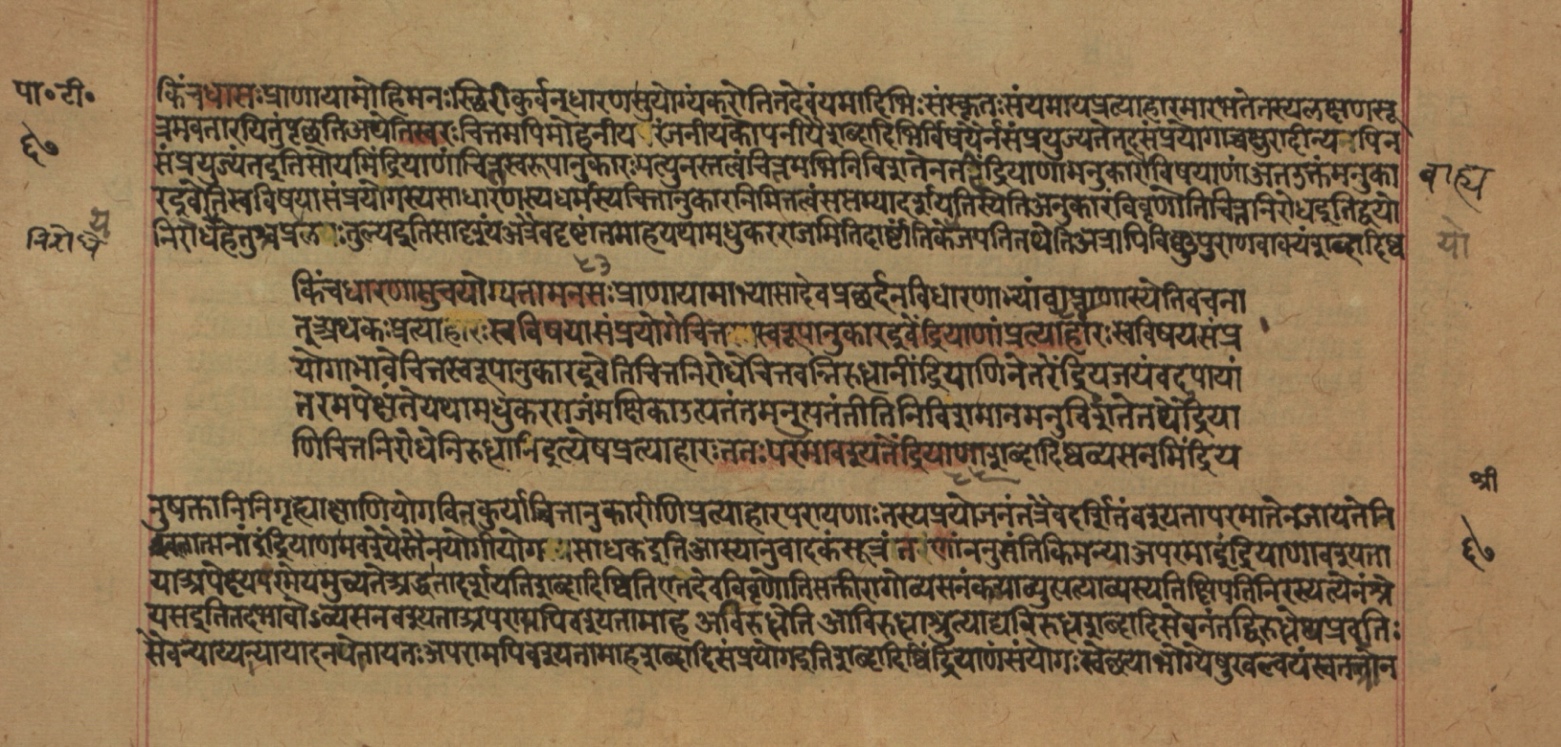 पा॰टी॰
६७
निरोधे य
किंचधासः प्राणायामोहिमनःस्थिरीकुर्वन्धारणसुयोग्यंकरोतितदेवंयमादिभिःसंस्कृतःसंयमायप्रत्याहारमारभतेतस्यलक्षणसू
त्रमवतारयितुंपृछतिअथेतिस्वरःचित्तमपिमोहनीय रंजनीयकोपनीयैःशब्दादिभिर्विषयैर्नसंप्रयुज्यतेतदसंप्रयोगाच्चक्षुरादीन्य पिन
संप्रयुज्यंतइतिसोयमिंद्रियाणांचित्तस्वरूपानुकारःयत्पुनस्तत्वंचित्तमभिनिविशतेनतदिंद्रियाणामनुकारोविषयाणांअतउक्तंमनुका
रइवेतिस्वविषयासंप्रयोगस्यसाधारणस्यधर्मस्यचित्तानुकारनिमित्तत्वंसप्तम्यादर्शयतिस्येतिअनुकारंविवृणोतिचित्तनिरोधइतिद्वयो
निरोधहेतुश्चप्रल तुल्यइतिसादृश्यंअत्रैवदृष्टांतमाहयथामधुकरराजमितिदार्ष्टांतिकेजपतितथेतिअत्रापिविष्णुपुराणवाक्यंशब्दादिष्व
किंचधारणासुचयोग्यतामनसःप्राणायामाभ्यासादेवप्रछर्दनविधारणाभ्यांवाप्राणस्येतिवचना
त्अथकःप्रत्याहारःस्वविषयासंप्रयोगेचित्त स्वरूपानुकारइवेंद्रियाणांप्रत्याहारःस्वविषयसंप्र
योगाभावेचित्तस्वरूपानुकारइवेतिचित्तनिरोधेचित्तवन्निरुद्धानींद्रियाणिनेतरेंद्रियजयवदुपायां
तरमपेक्षंतेयथामधुकरराजंमक्षिकाउत्पतंतमनूत्पतंतीतिनिविशमानमनुविशंतेतथेंद्रिया
णिचित्तनिरोधेनिरुद्धानिइत्येषप्रत्याहारःततःपरमावश्यतेंद्रियाणांशब्दादिष्वव्यसनमिंद्रिय
नुषक्तानिनिगृह्याक्षाणियोगवित्कुर्याच्चित्तानुकारीणिप्रत्याहारपरायणाःतस्यप्रयोजनंतत्रैवदर्शितंवश्यतापरमातेनजायतेति
त्मनांइंद्रियाणामवश्यैस्तैर्नयोगीयोग साधकइतिआस्यानुवादकंसूत्रं ननुसंतिकिमन्याअपरमाइंद्रियाणांवश्यता
याअपेक्ष्यपरमेयमुच्यतेअद्धातादर्शयतिशब्दादिष्वितिएतदेवविवृणोतिसक्तीरागोव्यसनंकयाव्युत्पत्याव्यस्यतिक्षिपतिनिरस्यत्येनंश्रे
यसइतितदभावोऽव्यसनवश्यताअपरामपिवश्यतामाह अविरुद्धेति आविरुद्धाश्रुत्याद्यविरुद्धशब्दादिसेवनंतद्विरुद्धेष्वप्रवृत्तिः
सैवन्याय्यन्यायादनपेतायतःअपरामपिवश्यतामाहशब्दादिसंप्रयोगइतिशब्दादिष्विंद्रियाणांसंयोगःस्वेछयाभोग्येषुखल्वयंस्वतन्त्रोन
वाह्य
यो
श्री
६७